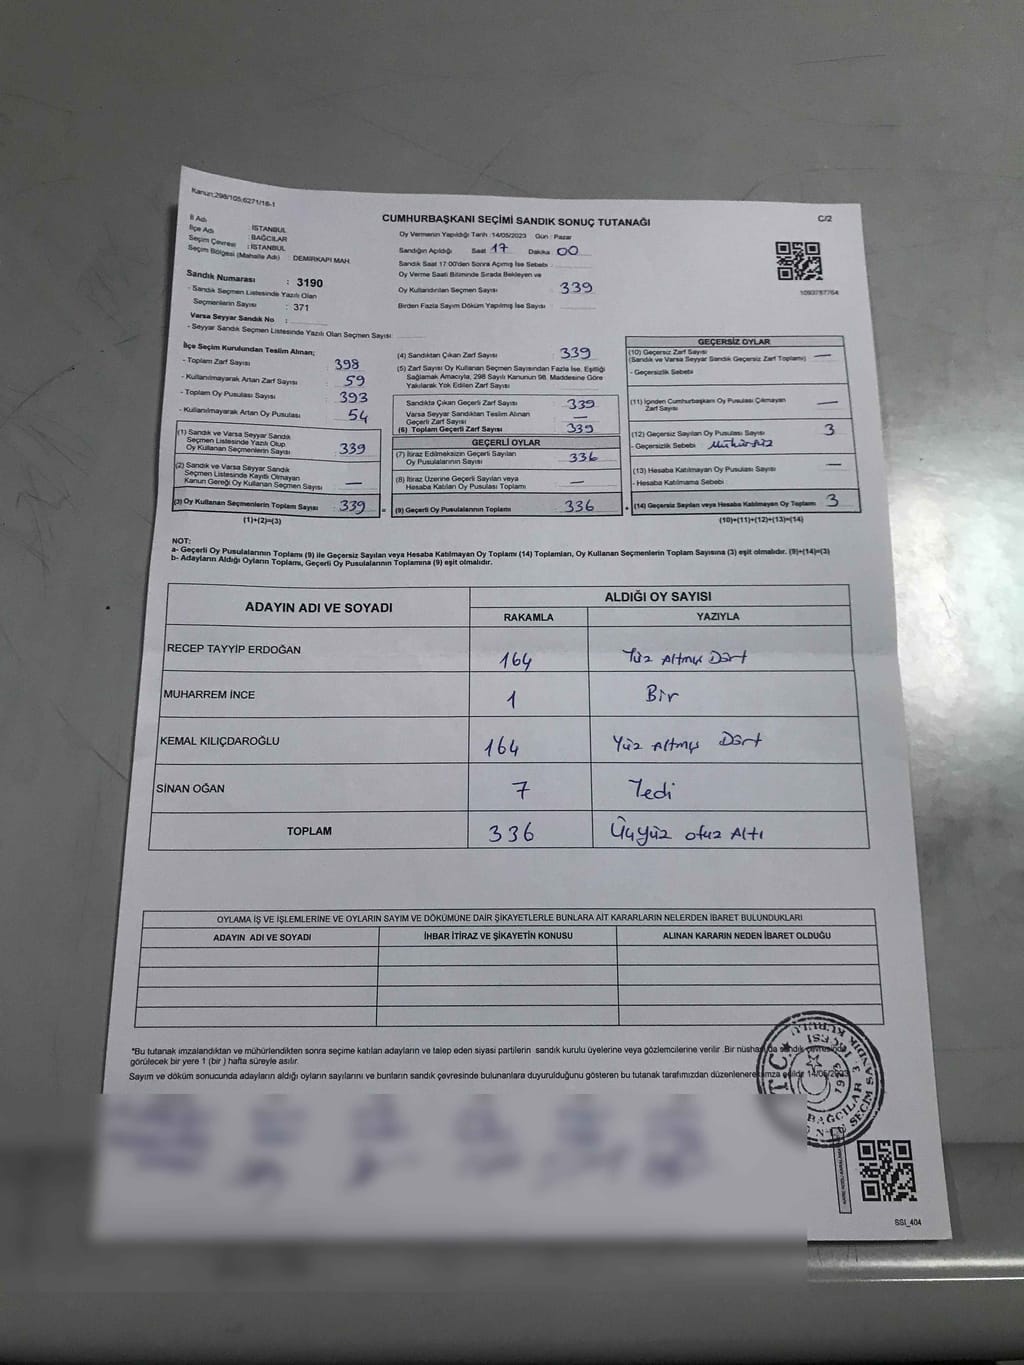 Kanun:298/105;6271/16-1
CUMHURBAŞKANI SEÇİMİ SANDIK SONUÇ TUTANAĞI
C/2
İl Adı : İSTANBUL
İlçe Adı : BAĞCILAR
Seçim Çevresi : İSTANBUL
Seçim Bölgesi (Mahalle Adı) : DEMİRKAPI MAH.
Sandık Numarası : 3190
- Sandık Seçmen Listesinde Yazılı Olan
Seçmenlerin Sayısı : 371
Varsa Seyyar Sandık No :
- Seyyar Sandık Seçmen Listesinde Yazılı Olan Seçmen Sayısı
Oy Vermenin Yapıldığı Tarih :14/05/2023 Gün : Pazar
Sandığın Açıldığı Saat 17 Dakika 00
Sandık Saat 17:00'den Sonra Açımış İse Sebebi :
Oy Verme Saati Bitiminde Sırada Bekleyen ve
Oy Kullandırılan Seçmen Sayısı 339
Birden Fazla Sayım Döküm Yapılmış İse Sayısı
1093787764
İlçe Seçim Kurulundan Teslim Alınan;
- Toplam Zarf Sayısı 398
- Kullanılmayarak Artan Zarf Sayısı 59
- Toplam Oy Pusulası Sayısı 393
- Kullanılmayarak Artan Oy Pusulası 54
(1) Sandık ve Varsa Seyyar Sandık
Seçmen Listesinde Yazılı Olup
Oy Kullanan Seçmenlerin Sayısı 339
(2) Sandık ve Varsa Seyyar Sandık
Seçmen Listesinde Kayıtlı Olmayan
Kanun Gereği Oy Kullanan Seçmen Sayısı —
(3) Oy Kullanan Seçmenlerin Toplam Sayısı 339
(1)+(2)=(3)
(4) Sandıktan Çıkan Zarf Sayısı 339
(5) Zarf Sayısı Oy Kullanan Seçmen Sayısından Fazla İse, Eşitliği
Sağlamak Amacıyla, 298 Sayılı Kanunun 98. Maddesine Göre
Yakılarak Yok Edilen Zarf Sayısı
Sandıkta Çıkan Geçerli Zarf Sayısı 339
Varsa Seyyar Sandıktan Teslim Alınan
Geçerli Zarf Sayısı —
(6) Toplam Geçerli Zarf Sayısı 339
GEÇERLİ OYLAR
(7) İtiraz Edilmeksizin Geçerli Sayılan
Oy Pusulalarının Sayısı 336
(8) İtiraz Üzerine Geçerli Sayılan veya
Hesaba Katılan Oy Pusulası Toplamı —
= (9) Geçerli Oy Pusulalarının Toplamı 336
GEÇERSİZ OYLAR
(10) Geçersiz Zarf Sayısı
(Sandık ve Varsa Seyyar Sandık Geçersiz Zarf Toplamı) —
- Geçersizlik Sebebi
(11) İçinden Cumhurbaşkanı Oy Pusulası Çıkmayan
Zarf Sayısı —
(12) Geçersiz Sayılan Oy Pusulası Sayısı 3
- Geçersizlik Sebebi Mühürsüz
(13) Hesaba Katılmayan Oy Pusulası Sayısı —
- Hesaba Katılmama Sebebi
+ (14) Geçersiz Sayılan veya Hesaba Katılmayan Oy Toplamı 3
(10)+(11)+(12)+(13)=(14)
NOT:
a- Geçerli Oy Pusulalarının Toplamı (9) ile Geçersiz Sayılan veya Hesaba Katılmayan Oy Toplamı (14) Toplamları, Oy Kullanan Seçmenlerin Toplam Sayısına (3) eşit olmalıdır. (9)+(14)=(3)
b- Adayların Aldığı Oyların Toplamı, Geçerli Oy Pusulalarının Toplamına (9) eşit olmalıdır.
ADAYIN ADI VE SOYADI
ALDIĞI OY SAYISI
RAKAMLA YAZIYLA
RECEP TAYYİP ERDOĞAN 164 Yüz Altmış Dört
MUHARREM İNCE 1 Bir
KEMAL KILIÇDAROĞLU 164 Yüz Altmış Dört
SİNAN OĞAN 7 Yedi
TOPLAM 336 Üçyüz otuz Altı
OYLAMA İŞ VE İŞLEMLERİNE VE OYLARIN SAYIM VE DÖKÜMÜNE DAİR ŞİKAYETLERLE BUNLARA AİT KARARLARIN NELERDEN İBARET BULUNDUKLARI
ADAYIN ADI VE SOYADI İHBAR İTİRAZ VE ŞİKAYETİN KONUSU ALINAN KARARIN NEDEN İBARET OLDUĞU
*Bu tutanak imzalandıktan ve mühürlendikten sonra seçime katılan adayların ve talep eden siyasi partilerin sandık kurulu üyelerine veya gözlemcilerine verilir .Bir nüshası da sandık çevresinde
görülecek bir yere 1 (bir ) hafta süreyle asılır.
Sayım ve döküm sonucunda adayların aldığı oyların sayılarını ve bunların sandık çevresinde bulunanlara duyurulduğunu gösteren bu tutanak tarafımızdan düzenlenerek imza edildi 14/05/2023
T.C.
BAĞCILAR 3
SEÇİM SANDIK KURULU
1993
SSI_404